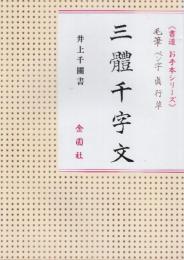 《書道 お手本シリーズ》
毛筆 ペン字 眞行草
三體千字文
井上千圃書
金園社